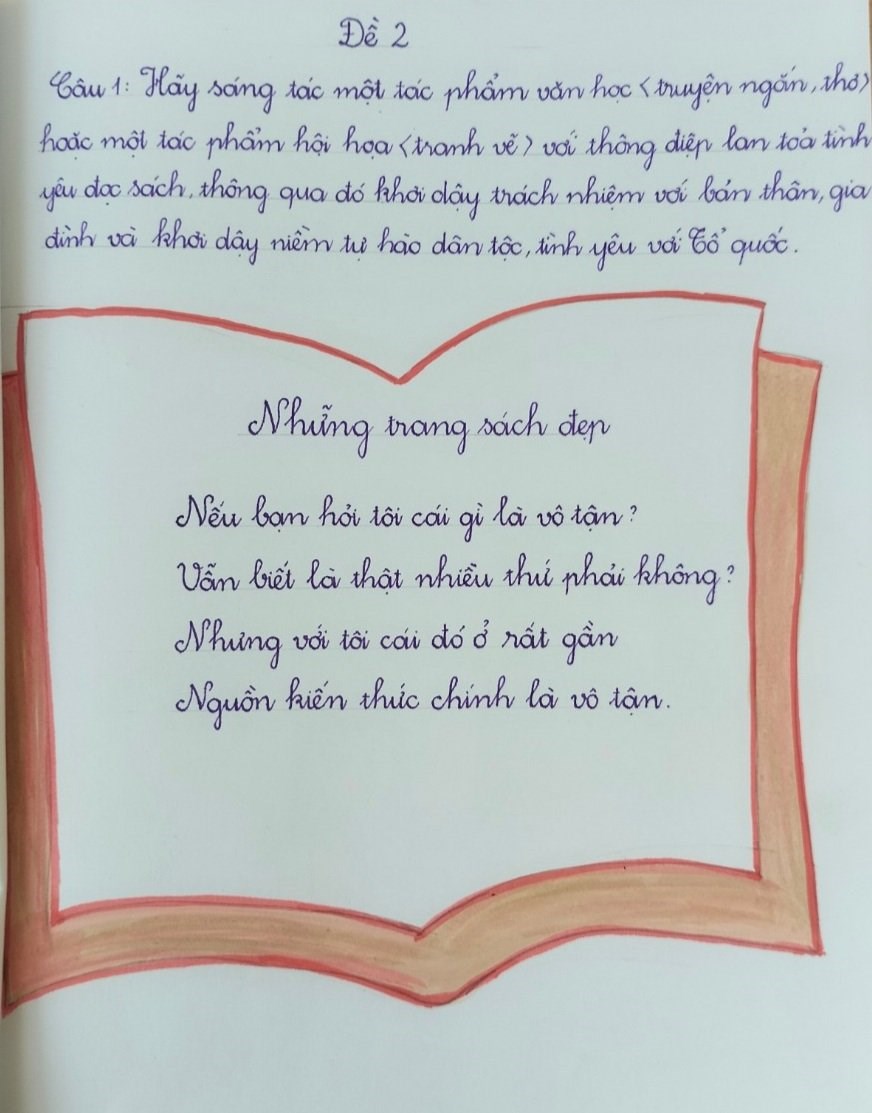 Đề 2
Câu 1: Hãy sáng tác một tác phẩm văn học <truyện ngắn, thơ>
hoặc một tác phẩm hội họa <tranh vẽ> với thông điệp lan toả tình
yêu đọc sách, thông qua đó khơi dậy trách nhiệm với bản thân, gia
đình và khơi dậy niềm tự hào dân tộc, tình yêu với Tổ quốc.
Những trang sách đẹp
Nếu bạn hỏi tôi cái gì là vô tận?
Vẫn biết là thật nhiều thứ phải không?
Nhưng với tôi cái đó ở rất gần
Nguồn kiến thức chính là vô tận.